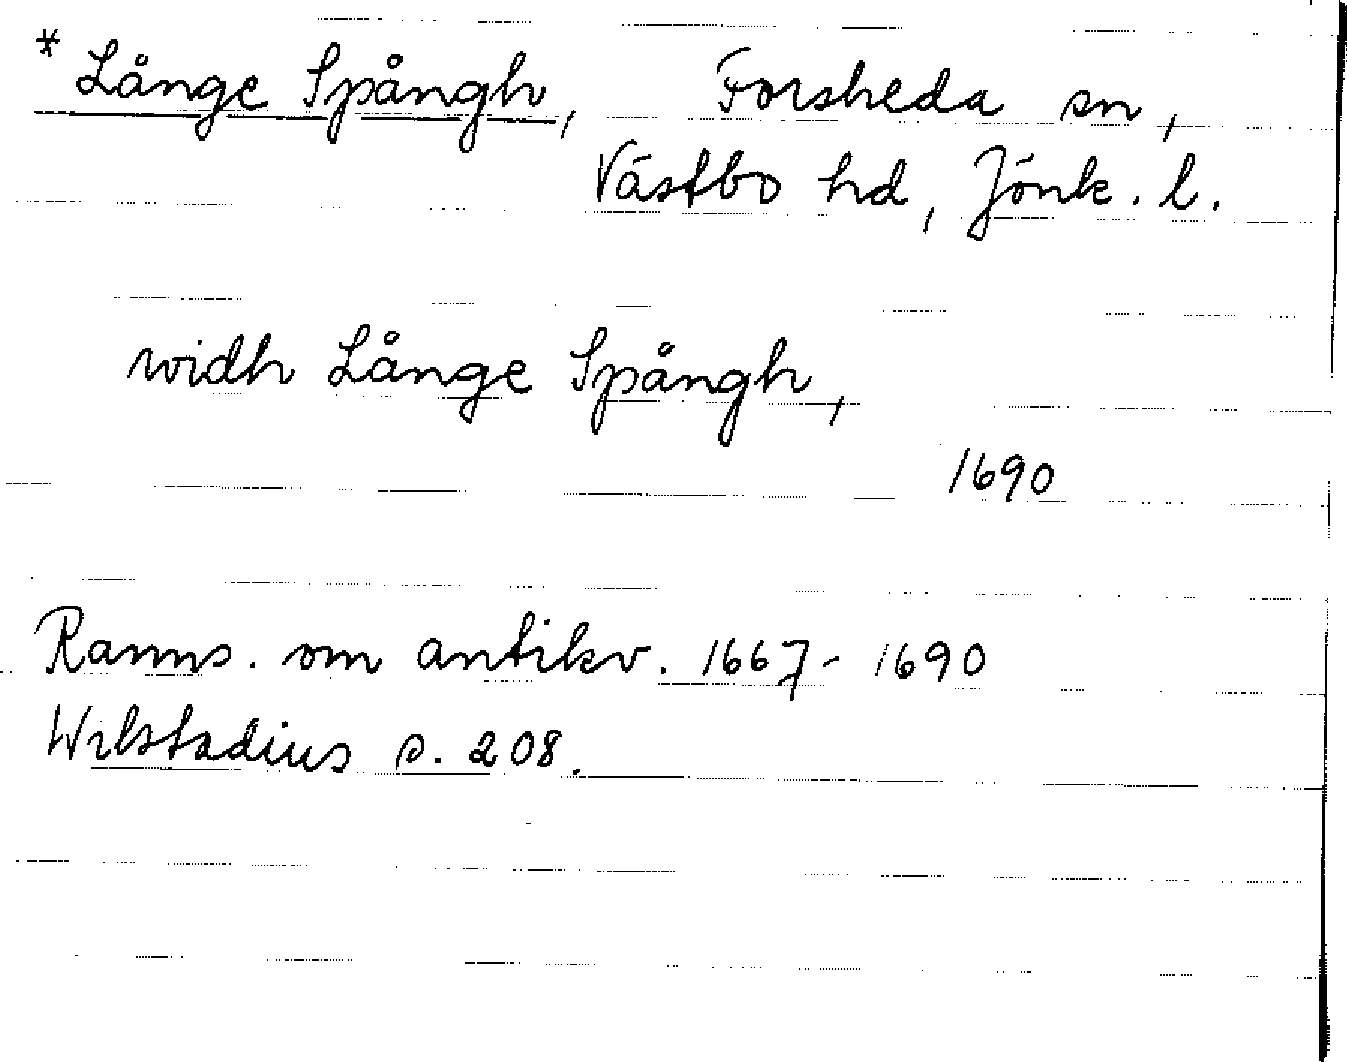 * Långe Spångh, Forsheda sn,
Västbo hd, Jönk. l.
widh Långe Spångh,
1690
Ranns. om antikv. 1667-1690
Wilstadius s. 208.